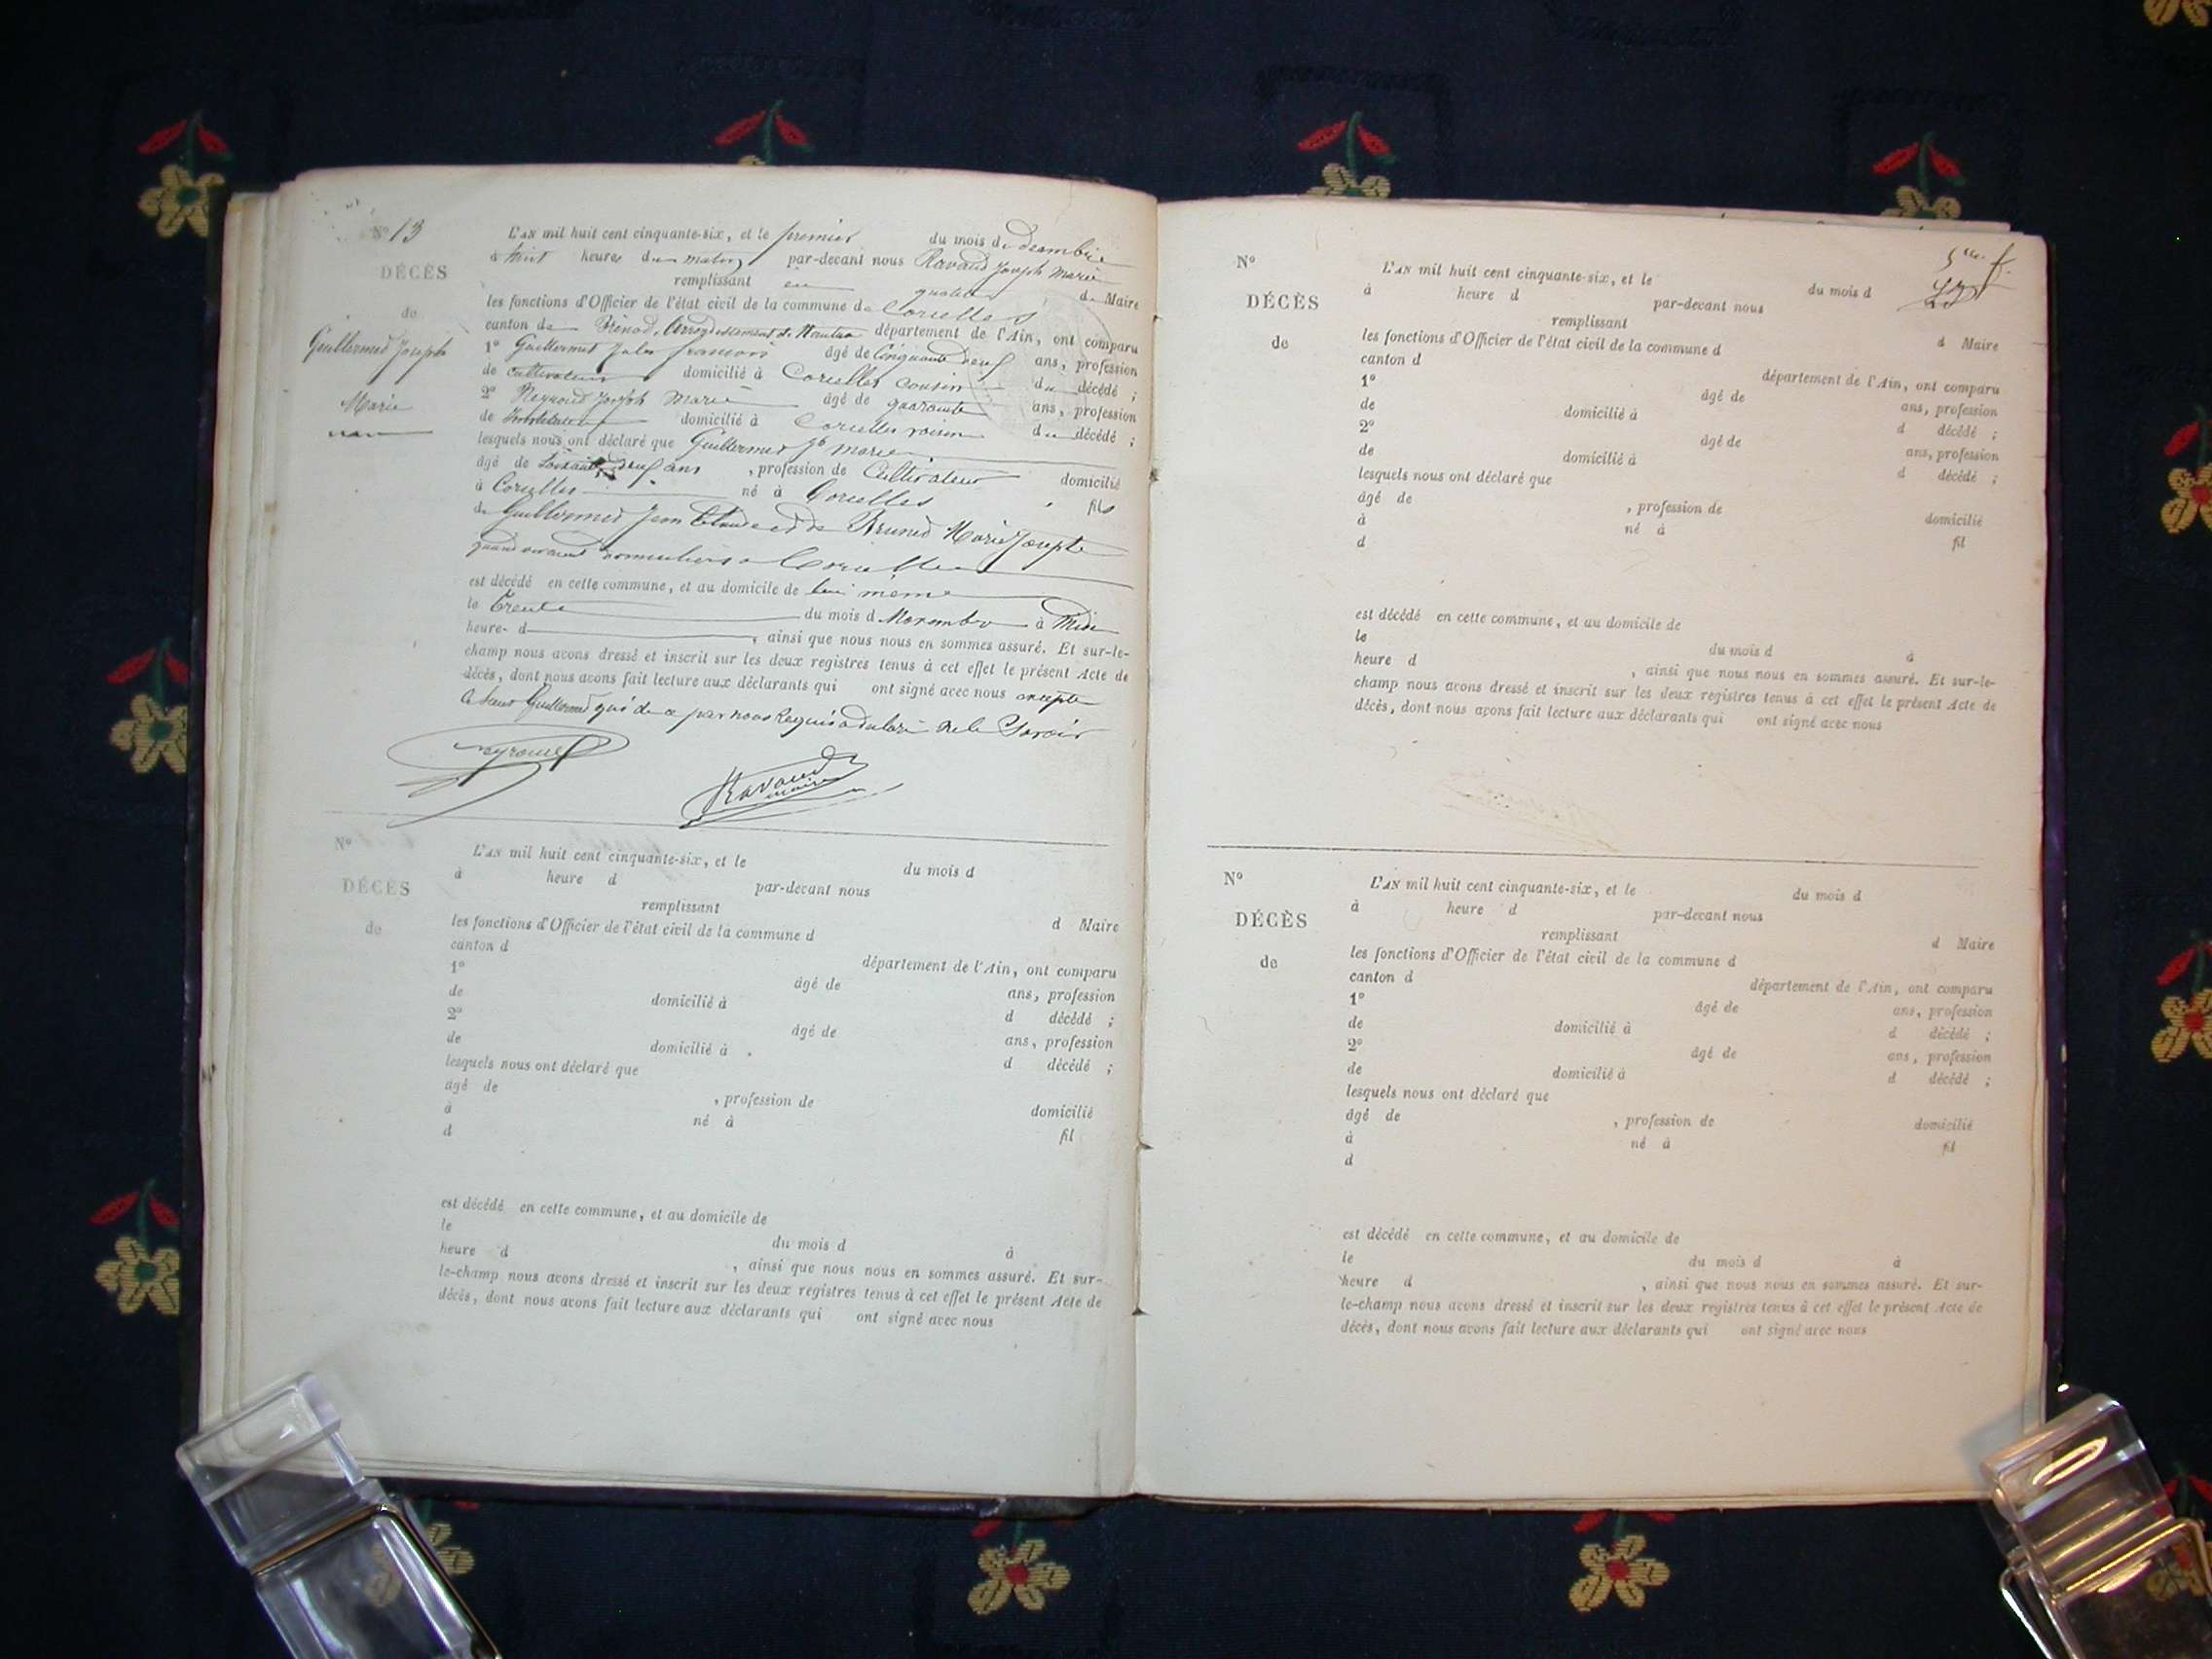 N° 13
DÉCÈS
de
Guillermet Joseph
Marie
L'AN mil huit cent cinquante-six, et le premier du mois de decembre
à huit heures du matin par-devant nous Ravaud Joseph Marie
remplissant en qualité de Maire
les fonctions d'Officier de l'état civil de la commune de Corcelles
canton de Brénod, arrondissement de Nantua département de l'Ain, ont comparu
1° Guillermet Jules françois âgé de Cinquante deuf ans, profession
de cultivateur domicilié à Corcelles cousin du décédé ;
2° Neyroud Joseph Marie âgé de quarante ans, profession
de domicilié à Corcelles voisin du décédé ;
lesquels nous ont déclaré que Guillermet Jh marie
âgé de Soixante deuf ans , profession de Cultivateur domicilié
à Corcelles né à Corcelles fils
de Guillermet Jean Claude et de Brunet Marie Josephte
quand vivaient domiciliers a Corcelles
est décédé en cette commune, et au domicile de lui même
le trente du mois d Novembre à Midi
heure d , ainsi que nous nous en sommes assuré. Et sur-le-
champ nous avons dressé et inscrit sur les deux registres tenus à cet effet le présent Acte de
décès, dont nous avons fait lecture aux déclarants qui ont signé avec nous excepté
le Guillermet qui de ce par nous Requis a de le Savoir
Neyroud
Ravaud
maire
N°
DÉCÈS
de
L'AN mil huit cent cinquante-six, et le du mois d
à heure d par-devant nous
remplissant d Maire
les fonctions d'Officier de l'état civil de la commune d
canton d département de l'Ain, ont comparu
1° âgé de ans, profession
de domicilié à d décédé ;
2° âgé de ans, profession
de domicilié à d décédé ;
lesquels nous ont déclaré que
âgé de , profession de domicilié
à né à fil
d
est décédé en cette commune, et au domicile de
le du mois d à
heure d , ainsi que nous nous en sommes assuré. Et sur-
le-champ nous avons dressé et inscrit sur les deux registres tenus à cet effet le présent Acte de
décès, dont nous avons fait lecture aux déclarants qui ont signé avec nous
N°
DÉCÈS
de
L'AN mil huit cent cinquante-six, et le du mois d
à heure d par-devant nous
remplissant d Maire
les fonctions d'Officier de l'état civil de la commune d
canton d département de l'Ain, ont comparu
1° âgé de ans, profession
de domicilié à d décédé ;
2° âgé de ans, profession
de domicilié à d décédé ;
lesquels nous ont déclaré que
âgé de , profession de domicilié
à né à fil
d
est décédé en cette commune, et au domicile de
le du mois d à
heure d , ainsi que nous nous en sommes assuré. Et sur-le-
champ nous avons dressé et inscrit sur les deux registres tenus à cet effet le présent Acte de
décès, dont nous avons fait lecture aux déclarants qui ont signé avec nous
N°
DÉCÈS
de
L'AN mil huit cent cinquante-six, et le du mois d
à heure d par-devant nous
remplissant d Maire
les fonctions d'Officier de l'état civil de la commune d
canton d département de l'Ain, ont comparu
1° âgé de ans, profession
de domicilié à d décédé ;
2° âgé de ans, profession
de domicilié à d décédé ;
lesquels nous ont déclaré que
âgé de , profession de domicilié
à né à fil
d
est décédé en cette commune, et au domicile de
le du mois d à
heure d , ainsi que nous nous en sommes assuré. Et sur-
le-champ nous avons dressé et inscrit sur les deux registres tenus à cet effet le présent Acte de
décès, dont nous avons fait lecture aux déclarants qui ont signé avec nous